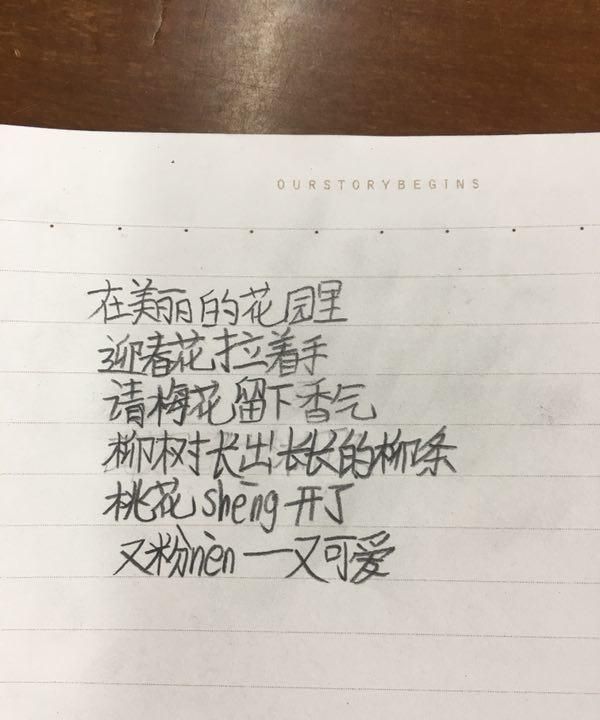 OURSTORYBEGINS
在美丽的花园里
迎春花拉着手
请梅花留下香气
柳树长出长长的柳条
桃花shēng开了
又粉nèn一又可爱